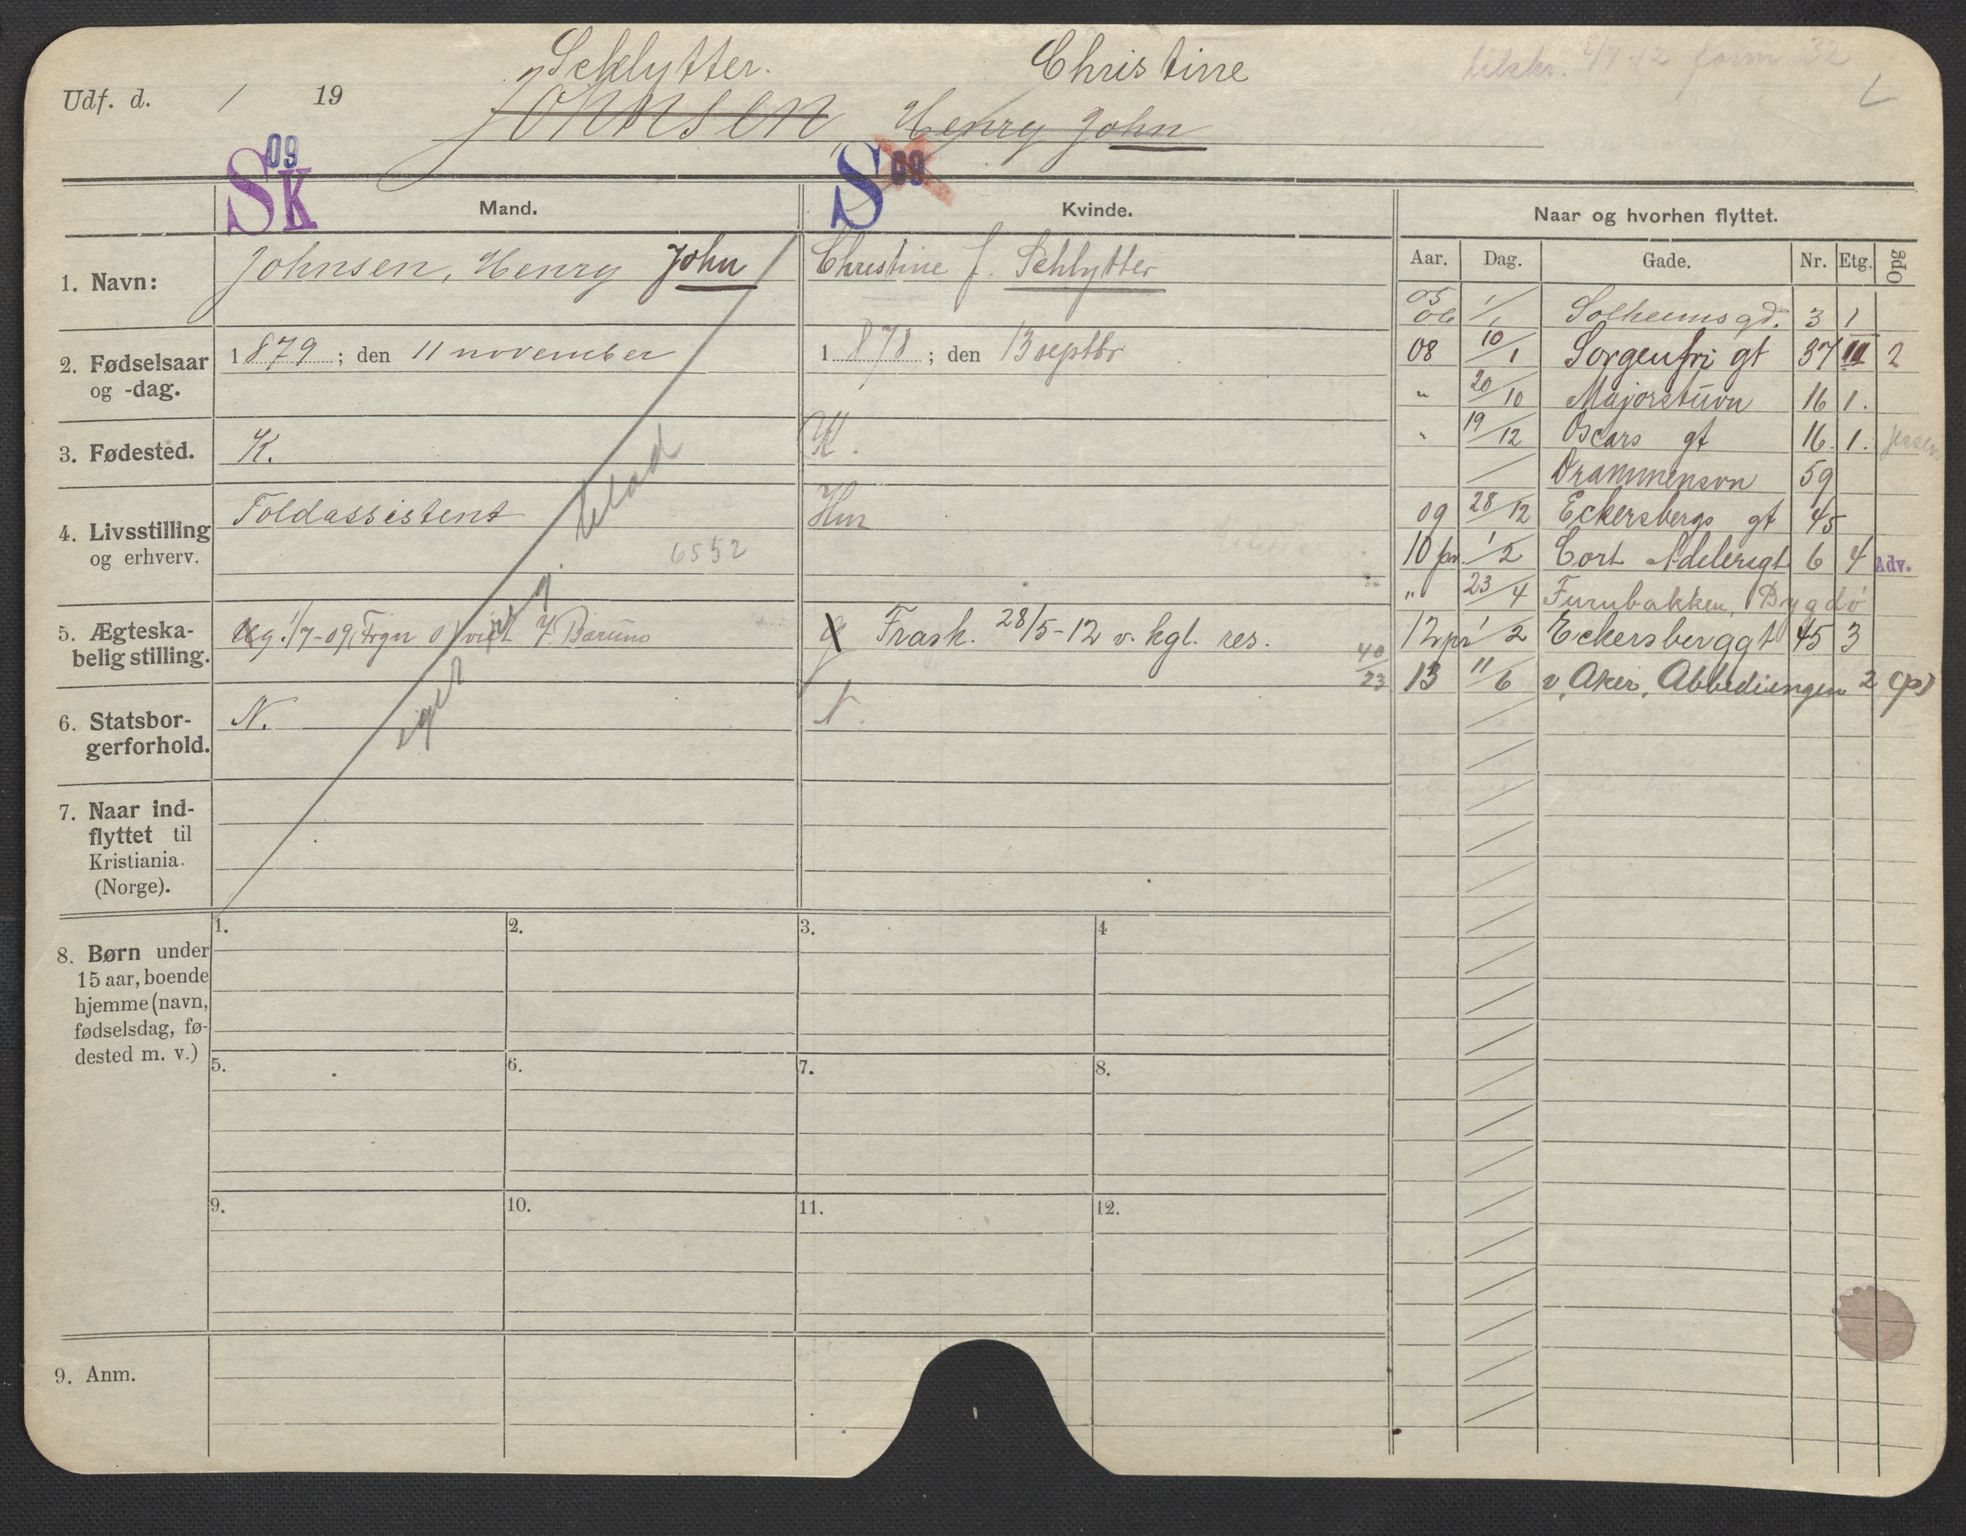 Schlytter. Christine
Udf. d. / 19 Johnsen, Henry John
tilskr. 8/7-12
L
09
SK
S 09
Mand.
Kvinde.
Naar og hvorhen flyttet.
1. Navn:
Johnsen, Henry John
Christine f. Schlytter
Aar. Dag. Gade. Nr. Etg. Opg
05
06 1/1 Solheimsgd. 3 1
2. Fødselsaar
og -dag.
1879; den 11 november
1878; den 13 septbr
08 10/1 Sorgenfri gt 37 III 2
" 20/10 Majorstuvn 16 1.
3. Fødested.
K.
K.
" 19/12 Oscars gt 16. 1.
/ Drammensvn 59
4. Livsstilling
og erhverv.
Toldassistent
6552
Hm
09 28/12 Eckersbergs gt 45
10 pr. 1/2 Cort Adelersgt 6 4 Adv.
" 23/4 Furubakken, Bygdö
5. Ægteska-
belig stilling.
g. 1/7-09, Frgn Olvist V. Bærum
g Frask. 28/5-12 v. kgl. res.
40/23
12 pr 1/2 Eckersberggt 45 3
13 11/6 v. Aker, Abbediengen 2 (p)
eget reg. blad
6. Statsbor-
gerforhold.
N.
N.
7. Naar ind-
flyttet til
Kristiania.
(Norge).
8. Børn under
15 aar, boende
hjemme (navn,
fødselsdag, fø-
dested m. v.)
1. 2. 3. 4
5. 6. 7. 8.
9. 10. 11. 12.
9. Anm.